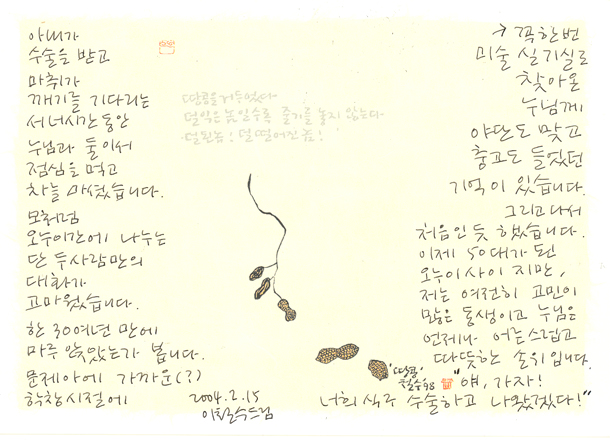 아내가
수술을 받고
마취가
깨기를 기다리는
서너시간 동안
누님과 둘이서
점심을 먹고
차를 마셨습니다.
모처럼
오누이간에 나누는
단 두사람만의
대화가
고마웠습니다.
한 30여년 만에
마주 앉았는가 봅니다.
문제아에 가까운(?)
학창시절에
땅콩을 거두었다
덜익은 놈일수록 줄기를 놓지 않는다
덜된놈! 덜 떨어진 놈!
→ 꼭 한번
미술 실기실로
찾아온
누님께
야단도 맞고
충고도 들었던
기억이 있습니다.
그리고 나서
처음인 듯 했습니다.
이제 50대가 된
오누이 사이 지만,
저는 여전히 고민이
많은 동생이고 누님은
언제나 어른스럽고
따뜻한 손위입니다.
"얘, 가자!
너희 식구 수술하고 나왔겠다!"
'땅콩'
철수98
2004.2.15
이철수드림